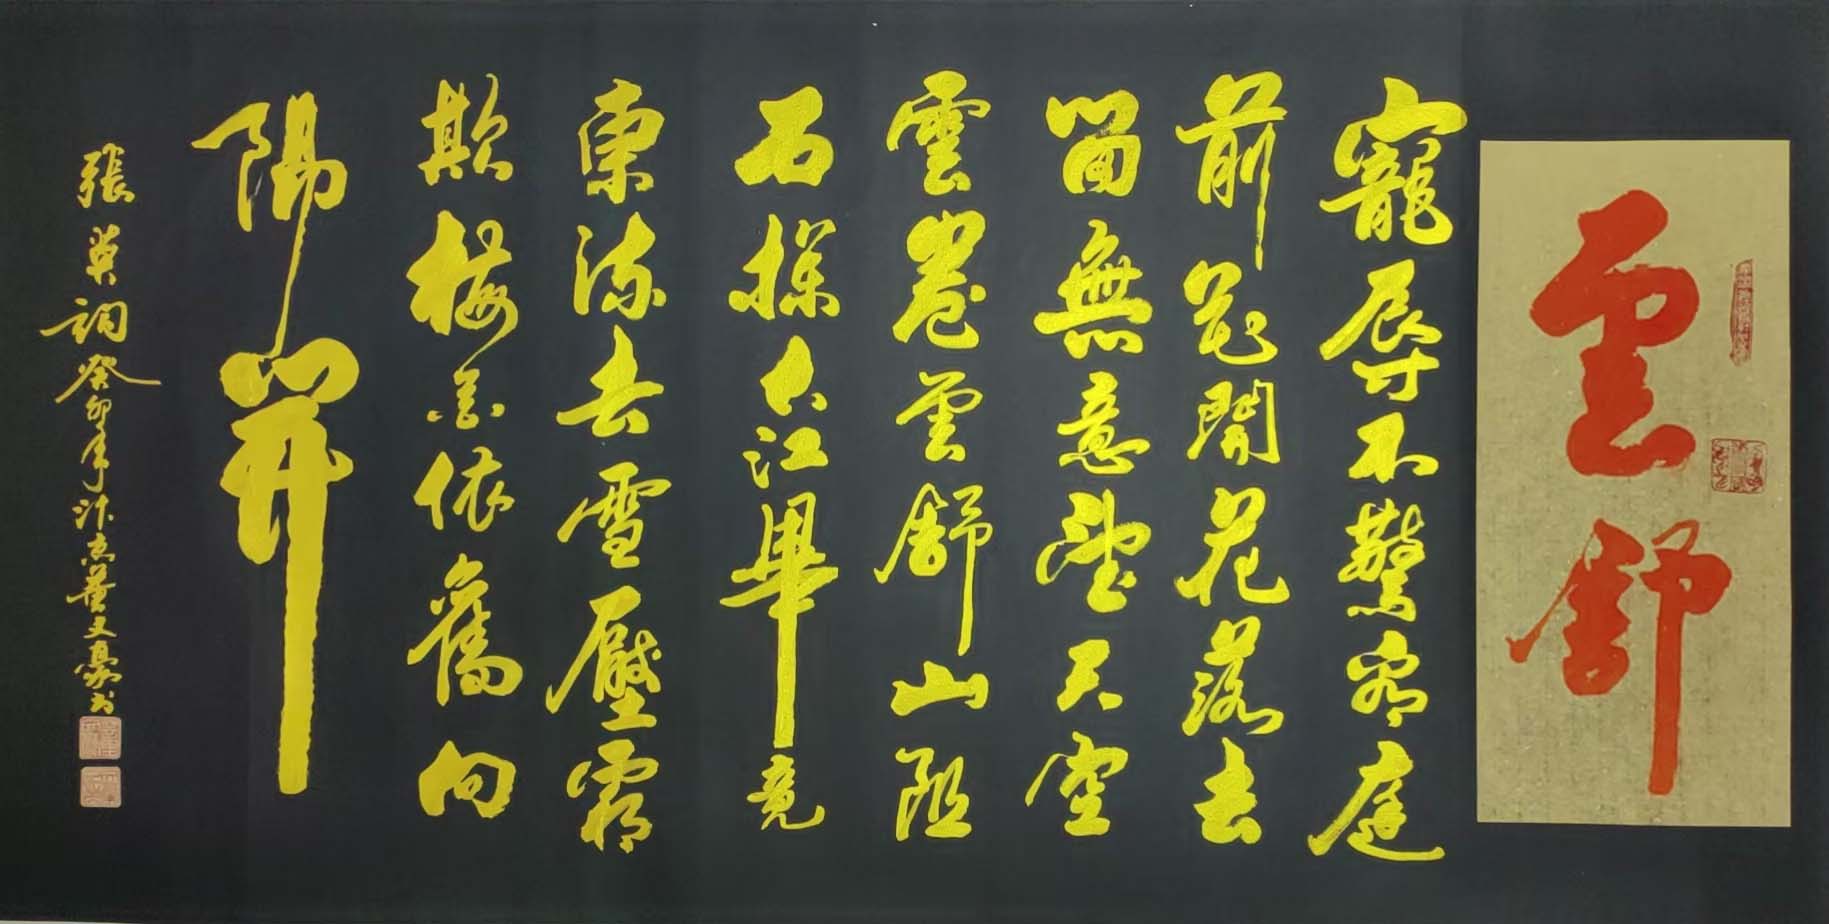 云舒
寵辱不驚看庭
前花開花落去
留無意望天空
雲卷雲舒山阻
石攔大江畢竟
東流去雪壓霜
欺梅花依舊向
陽開
張英詞癸卯年汴京董文豪書